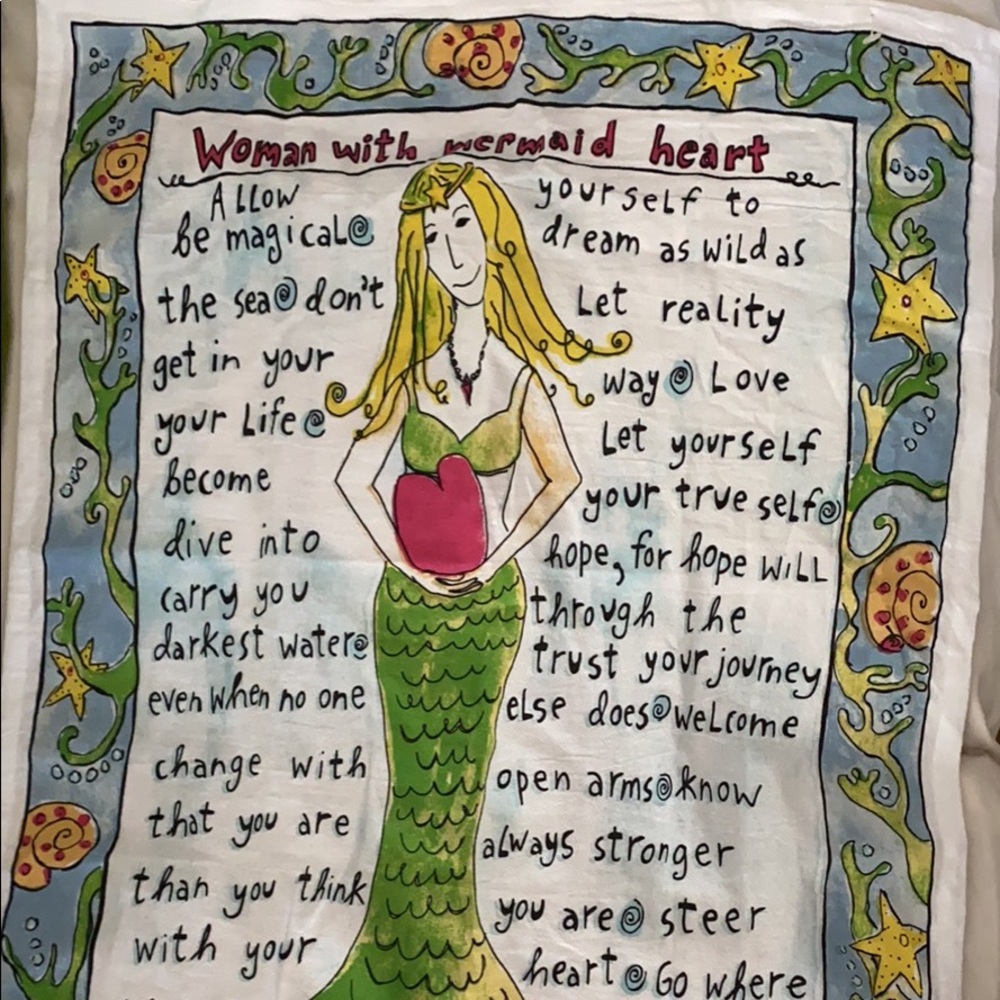 Woman with mermaid heart
Allow yourself to
be magical dream as wild as
the sea don't Let reality
get in your way Love
your Life Let yourself
become your true self
dive into hope, for hope will
carry you through the
darkest water trust your journey
even when no one else does welcome
change with open arms know
that you are always stronger
than you think you are steer
with your heart Go where